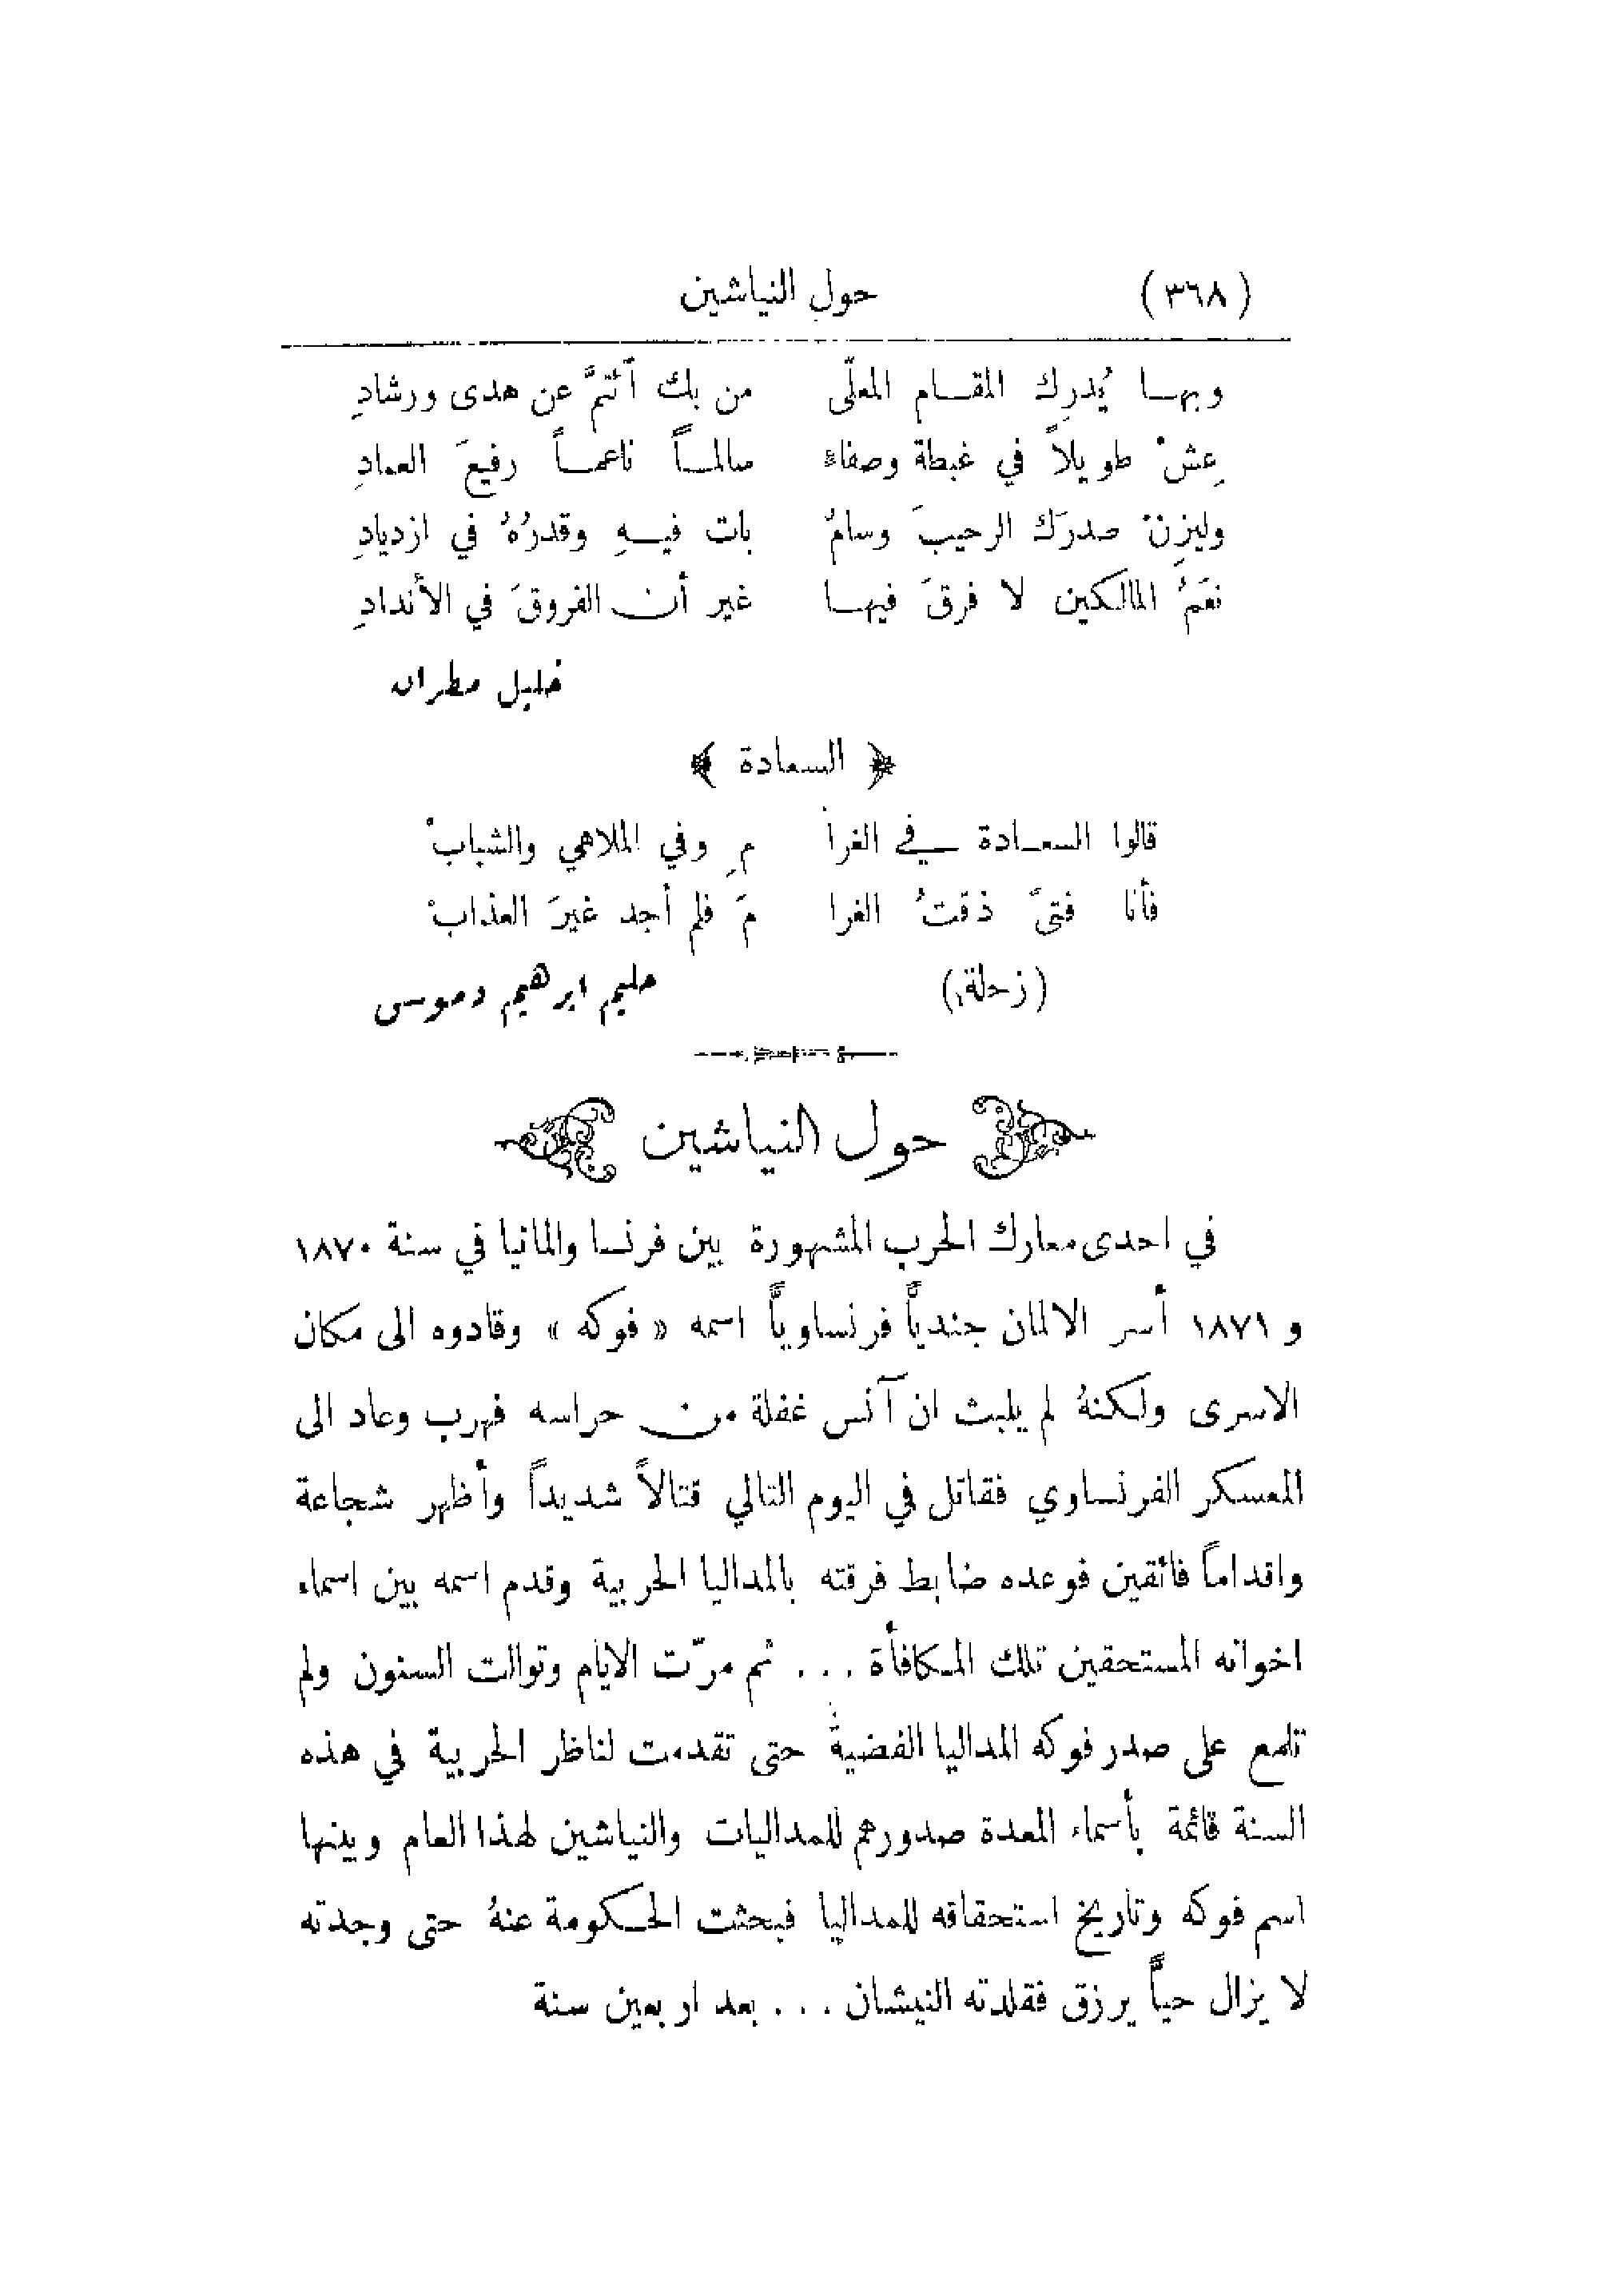 (٣٦٨) حول النياشين
وبهـا يُدرِك المقـام المعلّى من بك ائتمَّ عن هدى ورشادِ
عِشْ طويلاً في غبطة وصفاءٍ سالمـاً ناعمـاً رفيعَ العمادِ
وليزِنْ صدرَك الرحيبَ وسامٌ بات فيـهِ وقدرُهُ في ازديادِ
نعَمُ المالكين لا فرقَ فيهـا غير أن الفروقَ في الأندادِ
خليل مطران
﴿ السعادة ﴾
قالوا السعـادة في الغرا مِ وفي الملاهي والشبابْ
فأنا فتىً ذقتُ الغرا مَ فلم أجد غيرَ العذابْ
(زحلة) حليم ابرهيم دموسى
حول النياشين
في احدى معارك الحرب المشهورة بين فرنسا والمانيا في سنة ١٨٧٠
و ١٨٧١ أسر الالمان جندياًّ فرنساوياًّ اسمه « فوكه » وقادوه الى مكان
الاسرى ولكنهُ لم يلبث ان آنس غفلة من حراسه فهرب وعاد الى
المعسكر الفرنساوي فقاتل في اليوم التالي قتالاً شديداً وأظهر شجاعة
واقداماً فائقين فوعده ضابط فرقته بالمداليا الحربية وقدم اسمه بين اسماء
اخوانه المستحقين تلك المكافأة ... ثم مرّت الايام وتوالت السنون ولم
تلمع على صدر فوكه المداليا الفضية حتى تقدمت لناظر الحربية في هذه
السنة قائمة بأسماء المعدة صدورهم للمداليات والنياشين لهذا العام وبينها
اسم فوكه وتاريخ استحقاقه للمداليا فبحثت الحكومة عنهُ حتى وجدته
لا يزال حياًّ يرزق فقلدته النيشان ... بعد اربعين سنة